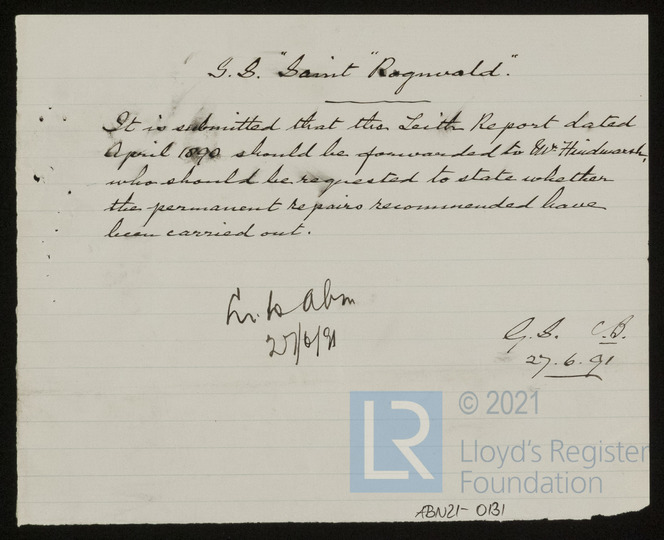 S.S. "Saint "Rognvald".
It is submitted that the Leith Report dated
April 1890 should be forwarded to Mr. Hindmarsh,
who should be requested to state whether
the permanent repairs recommended have
been carried out.
to Abn
27/6/91
G.S. C.B.
27.6.91
LR
© 2021
Lloyd's Register
Foundation
ABN21-0131